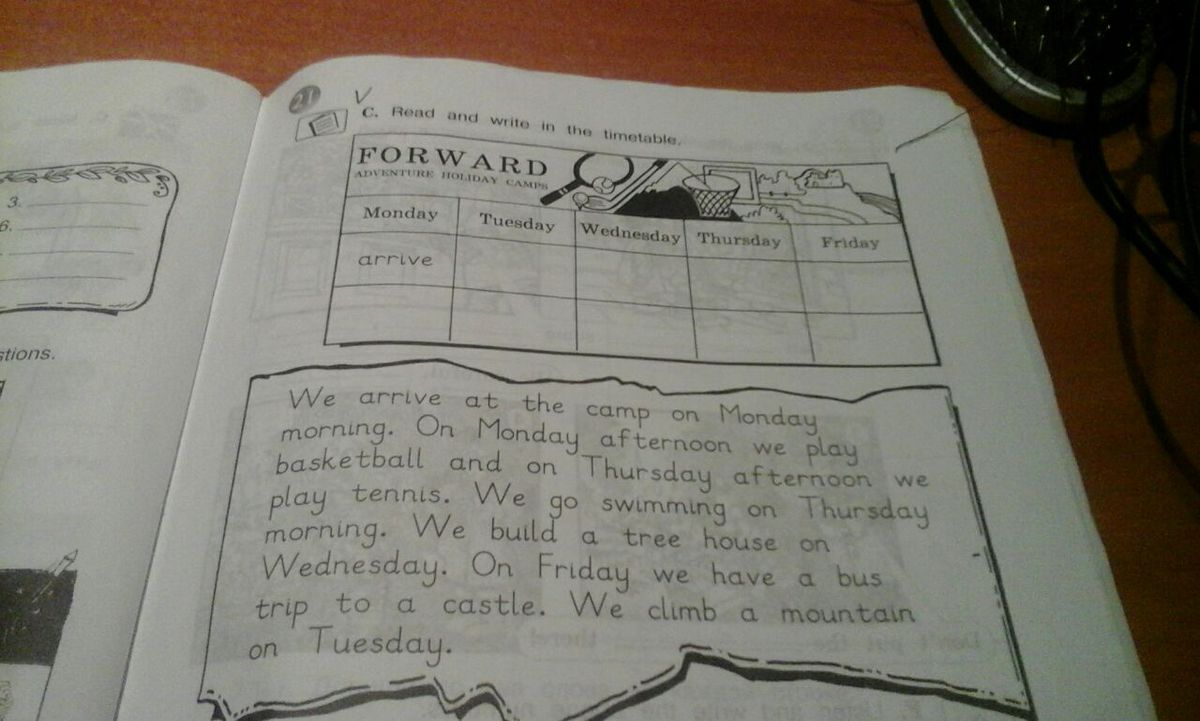 3.
6.
stions.
21
C. Read and write in the timetable.
FORWARD
ADVENTURE HOLIDAY CAMPS
Monday Tuesday Wednesday Thursday Friday
arrive
We arrive at the camp on Monday
morning. On Monday afternoon we play
basketball and on Thursday afternoon we
play tennis. We go swimming on Thursday
morning. We build a tree house on
Wednesday. On Friday we have a bus
trip to a castle. We climb a mountain
on Tuesday.